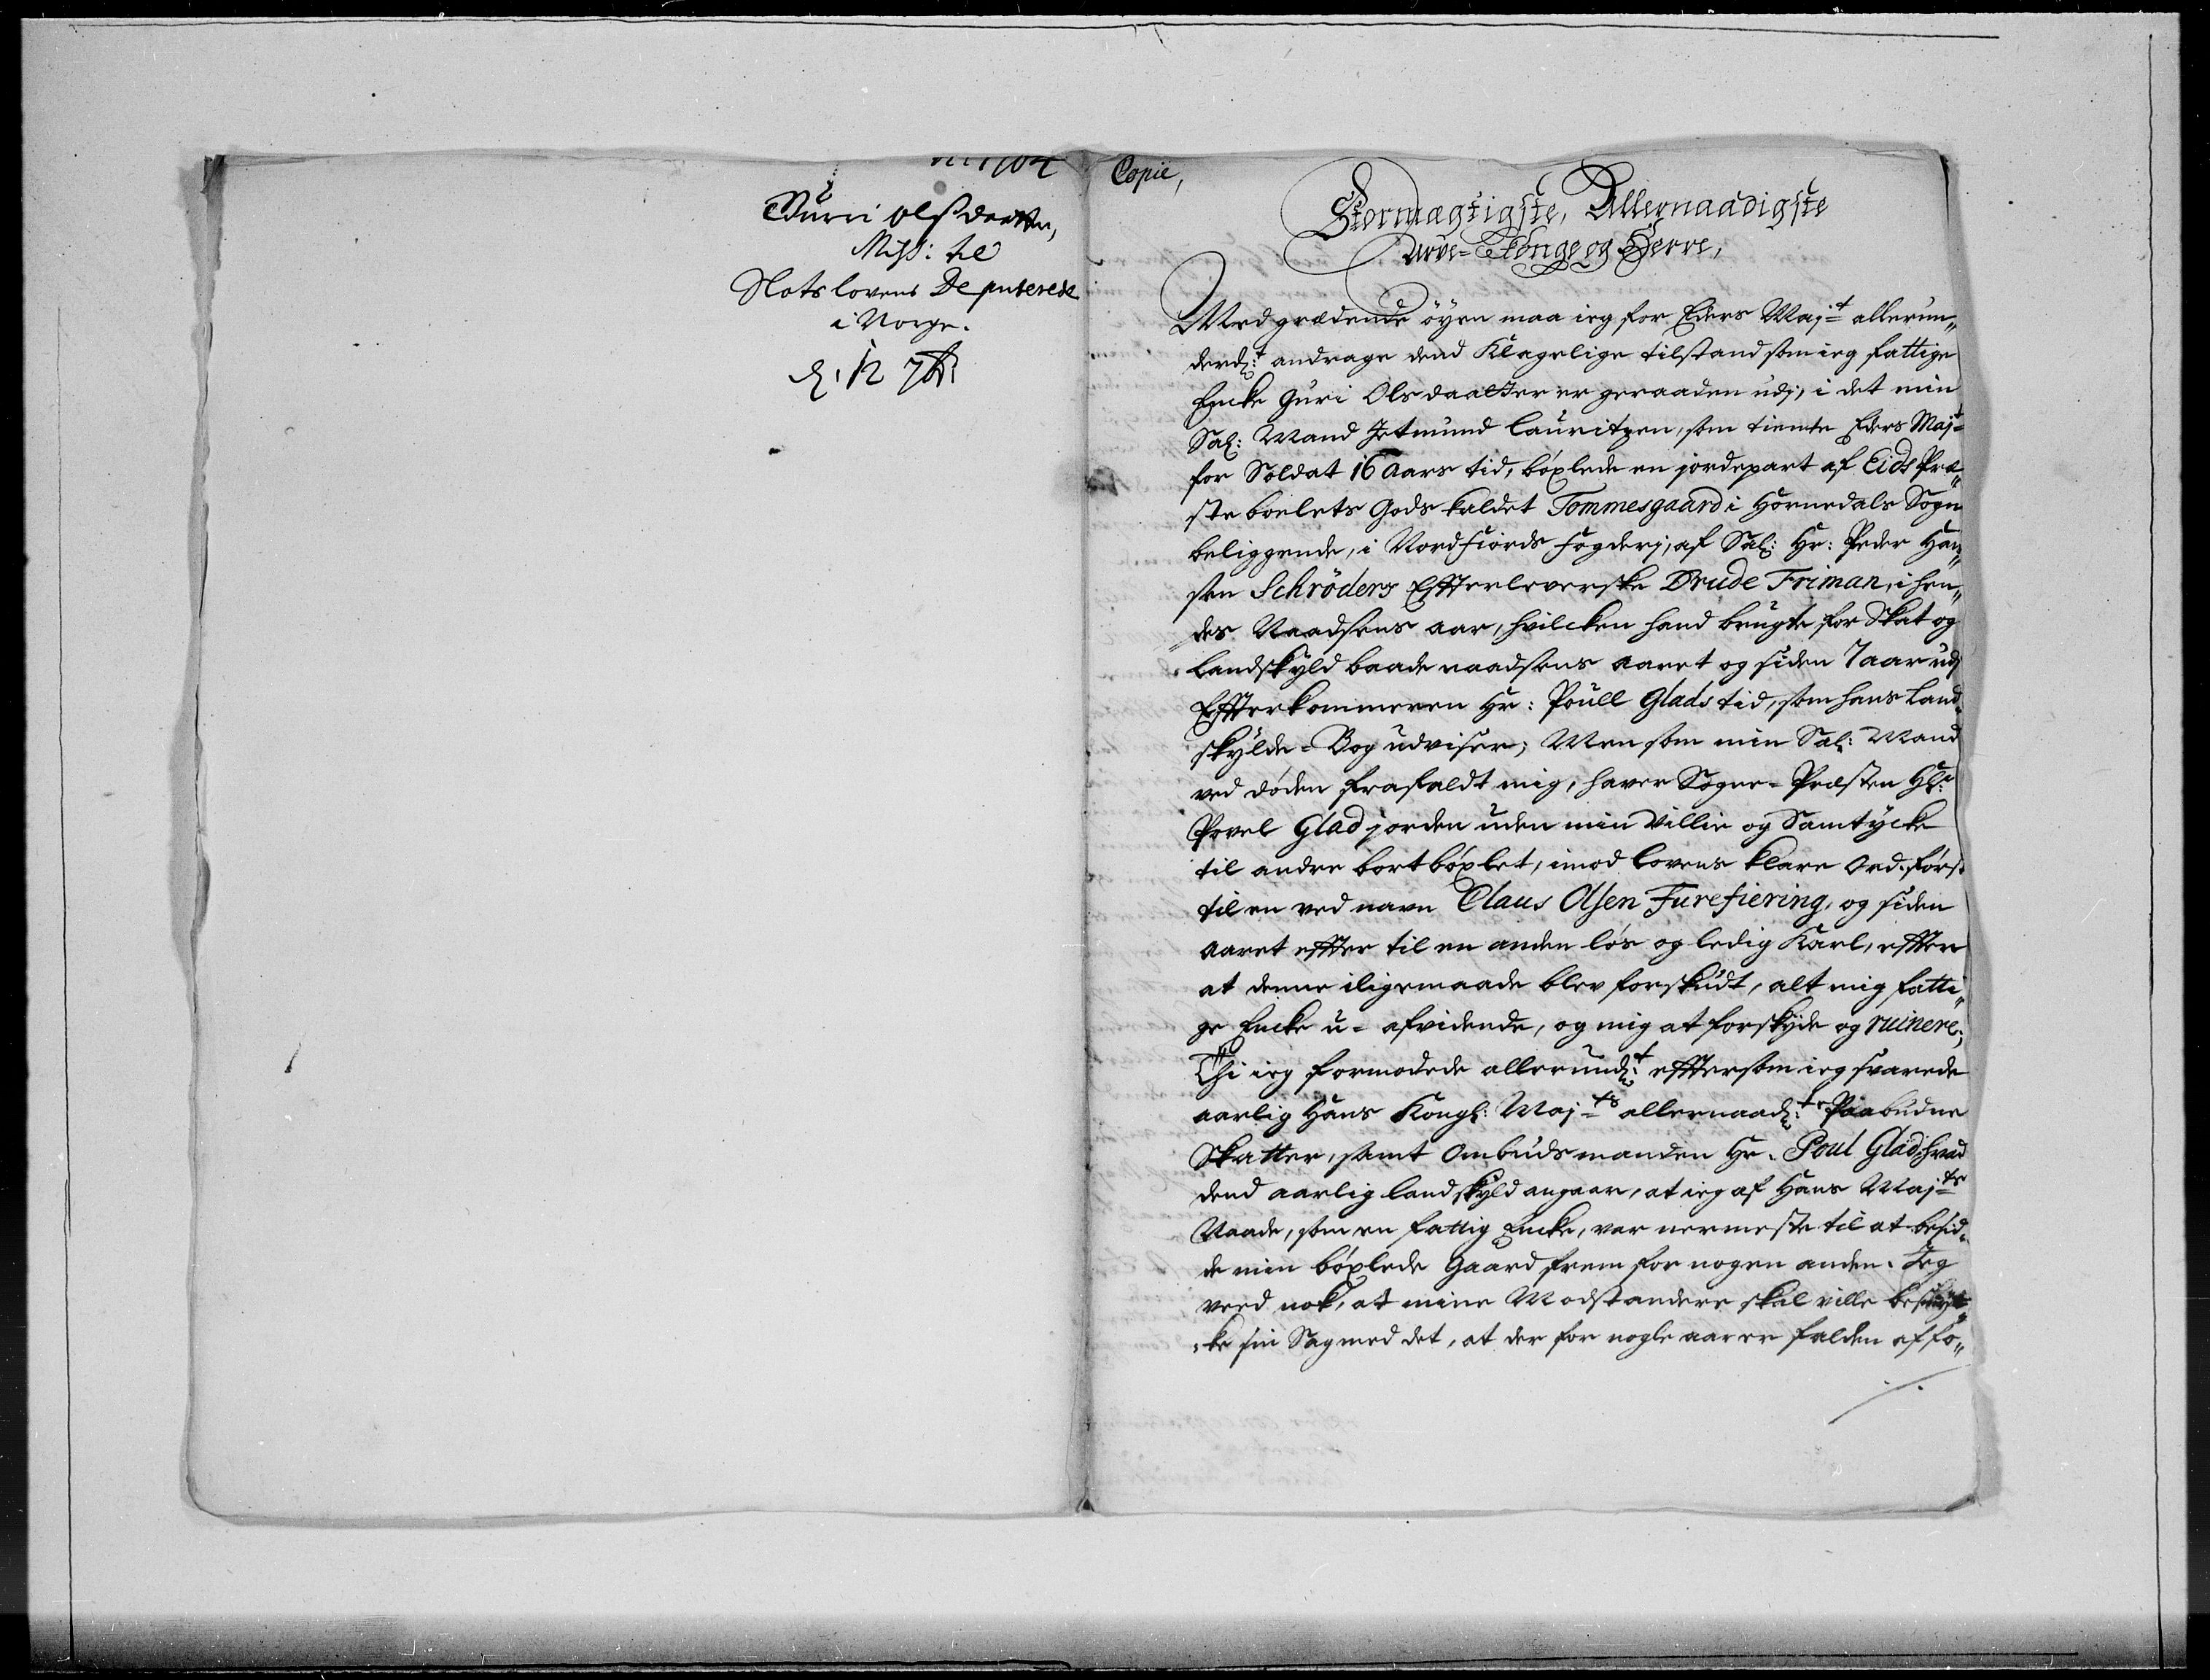 Gurri Olsdaatter,
Miss: til
Slotslovens Deputerede
i Norge.
d: 12 7br:
Copie,
Stormægtigste, Allernaadigste
Arve-Konge og Herre,
Med grædende öyen maa ieg for Eders Maj:t allerun„
derd:t andrage dend Klagelige tilstand som ieg fattige
Encke Guri Olsdaatter er geraaden udj, i det min
Sal: Mand Jetmund Lauritzen, som tiente Eders Maj:t
for Soldat 16 Aars tid, böxlede en jordepart af Eids Præ„
ste boelets Gods kaldet Tommesgaard i Hornedals Sogn
beliggende, i Nordfiords fogderj, af Sal: Hr: Peder Han„
sen Schröders Effterleverske Drude Friman, i hen„
des Naadsens aar, hvilcken hand brugte for Skat og
Landskyld baade naadsens aaret og siden 7 aar udj
Effterkommeren Hr: Poull Glads tid, som hans Land„
skylde-Bog udviser; Men som min Sal: Mand
ved döden frafaldt mig, haver Sogne-Præsten Hr:
Povel Glad jorden uden min Villie og Samtycke
til andre bortböxlet, imod Lovens klare Ord, först
til en ved navn Claus Olsen Furefiering, og siden
aaret effter til en anden lös og ledig Karl, effter
at denne iligemaade blev forskudt, alt mig fatti„
ge Encke u-afvidende, og mig at forskyde og ruinere;
Thi ieg formodede allerund:t efftersom ieg svarede
aarlig Hans Kongl: Maj:ts allernaad:te Paabudne
Skatter, samt Ombudsmanden Hr. Poul Glad hvad
dend aarlig landskyld angaar, at ieg af Hans Maj:ts
Naade, som en fattig Encke, var nermeste til at besid„
de min böxlede Gaard frem for nogen anden. Jeg
veed nok, at mine Modstandere skal ville besmyk„
ke sin Sag med det, at der for nogle aar er falden af fo„